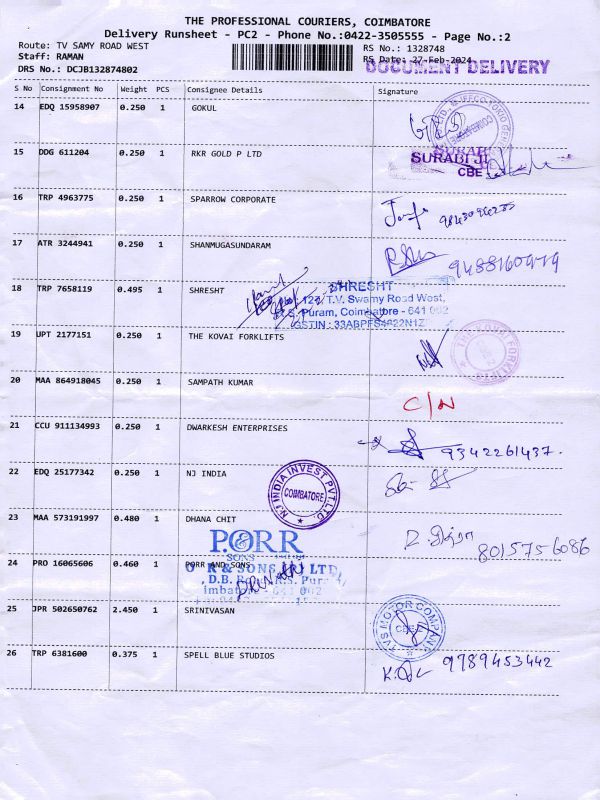 THE PROFESSIONAL COURIERS, COIMBATORE
Delivery Runsheet - PC2 - Phone No.:0422-3505555 - Page No.:2
Route: TV SAMY ROAD WEST RS No.: 1328748
Staff: RAMAN RS Date: 27-Feb-2024
DRS No.: DCJB132874802 DOCUMENT DELIVERY
S No Consignment No Weight PCS Consignee Details Signature
14 EDQ 15958907 0.250 1 GOKUL
15 DDG 611204 0.250 1 RKR GOLD P LTD
SURABI
CBE
16 TRP 4963775 0.250 1 SPARROW CORPORATE
17 ATR 3244941 0.250 1 SHANMUGASUNDARAM
18 TRP 7658119 0.495 1 SHRESHT SHRESHT
T.V. Swamy Road West,
Puram, Coimbatore - 641 002
19 UPT 2177151 0.250 1 THE KOVAI FORKLIFTS THE KOVAI FORKLIFTS
20 MAA 864918045 0.250 1 SAMPATH KUMAR C/N
21 CCU 911134993 0.250 1 DWARKESH ENTERPRISES 9342261437.
22 EDQ 25177342 0.250 1 NJ INDIA
NJ INDIA INVEST PVT LTD
COIMBATORE
23 MAA 573191997 0.480 1 DHANA CHIT 8015756086
PORR
SONS
24 PRO 16065606 0.460 1 PORR AND SONS
& SONS LTD
25 JPR 502650762 2.450 1 SRINIVASAN TVS MOTOR COMPANY
26 TRP 6381600 0.375 1 SPELL BLUE STUDIOS 9789453442